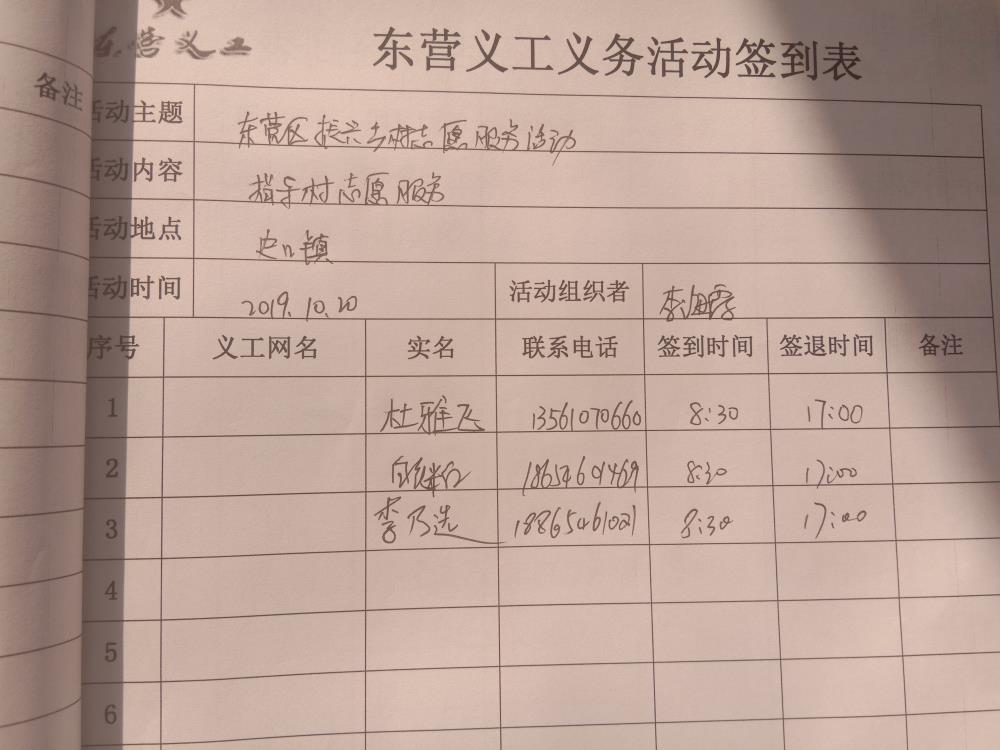 备注
东营义工
东营义工义务活动签到表
活动主题 东营区振兴乡村志愿服务活动
活动内容 指手村志愿服务
活动地点 史口镇
活动时间 2019.10.20 活动组织者 李海霞
序号 义工网名 实名 联系电话 签到时间 签退时间 备注
1 杜雅飞 13561070660 8:30 17:00
2 18654601469 8:30 17:00
3 李乃选 18865461021 8:30 17:00
4
5
6